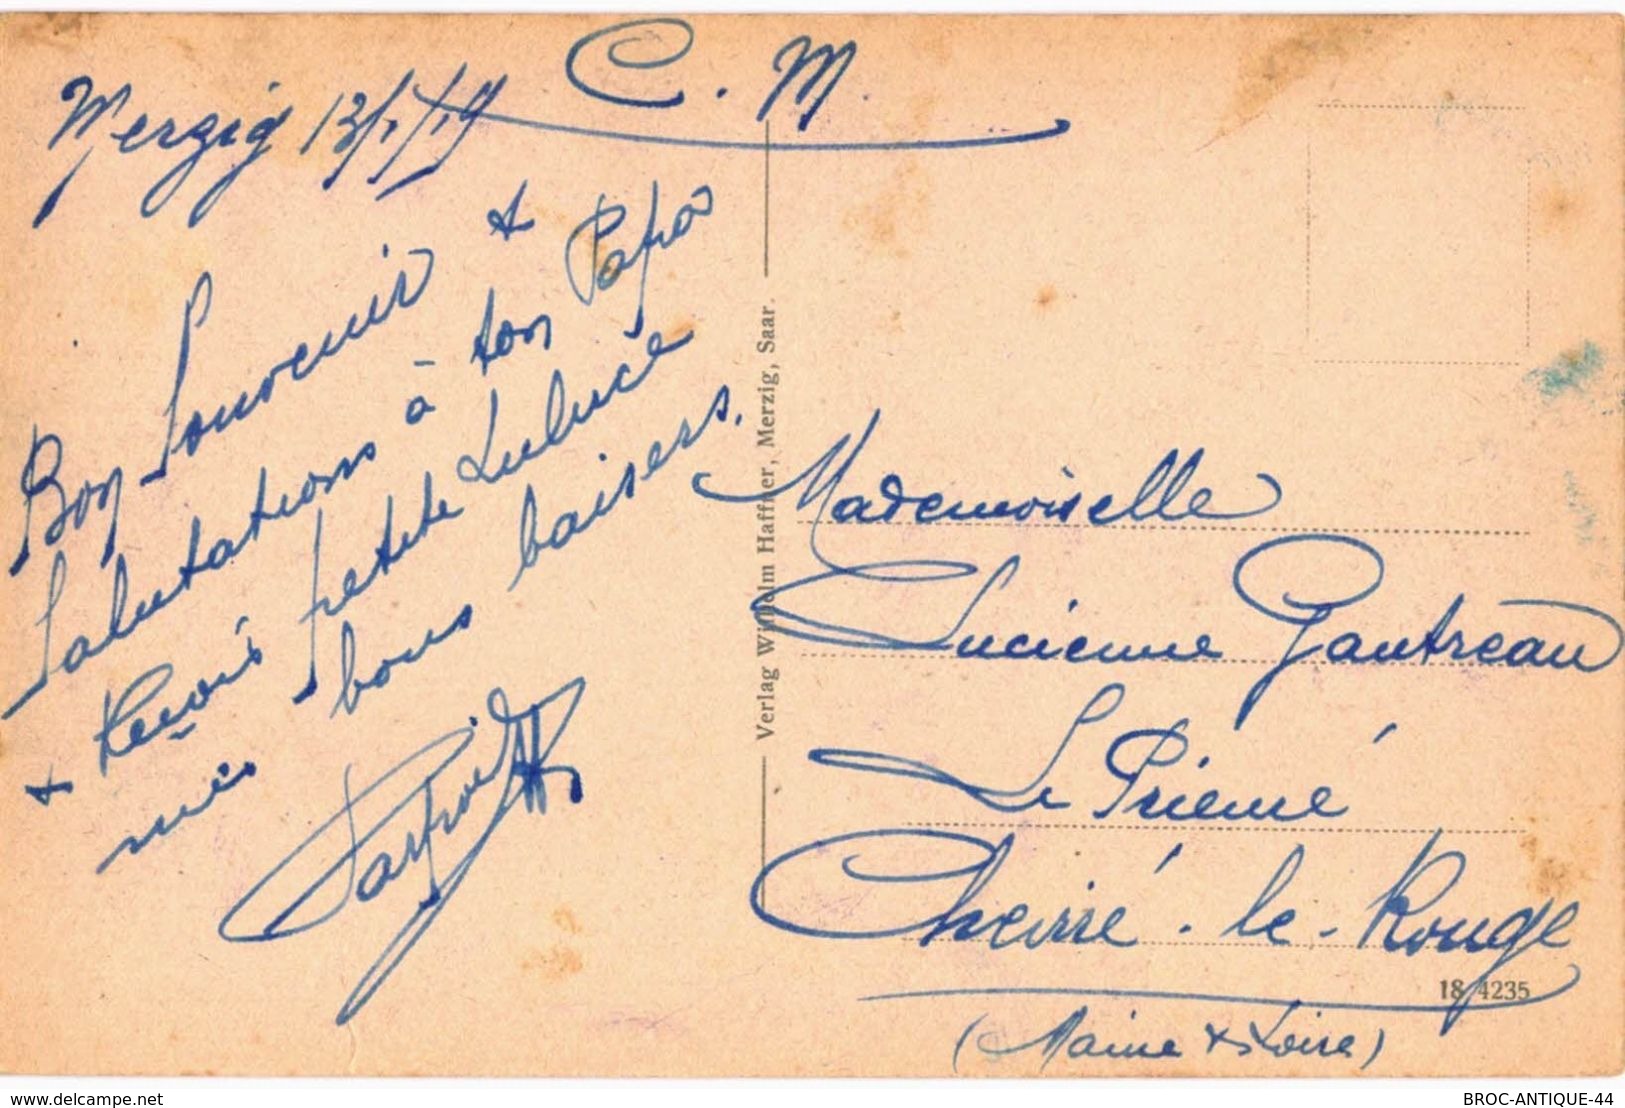 C. M.
Merzig 13/1/19
Bon Souvenir &
Salutations à ton Papa
& Reçois petite Lulucie
mes bons baisers.
Verlag Wilhelm Haffner, Merzig, Saar.
Mademoiselle
Lucienne Gautreau
Le Prieuré
Cheviré-le-Rouge
(Maine & Loire)
18 4235
www.delcampe.net
BROC-ANTIQUE-44